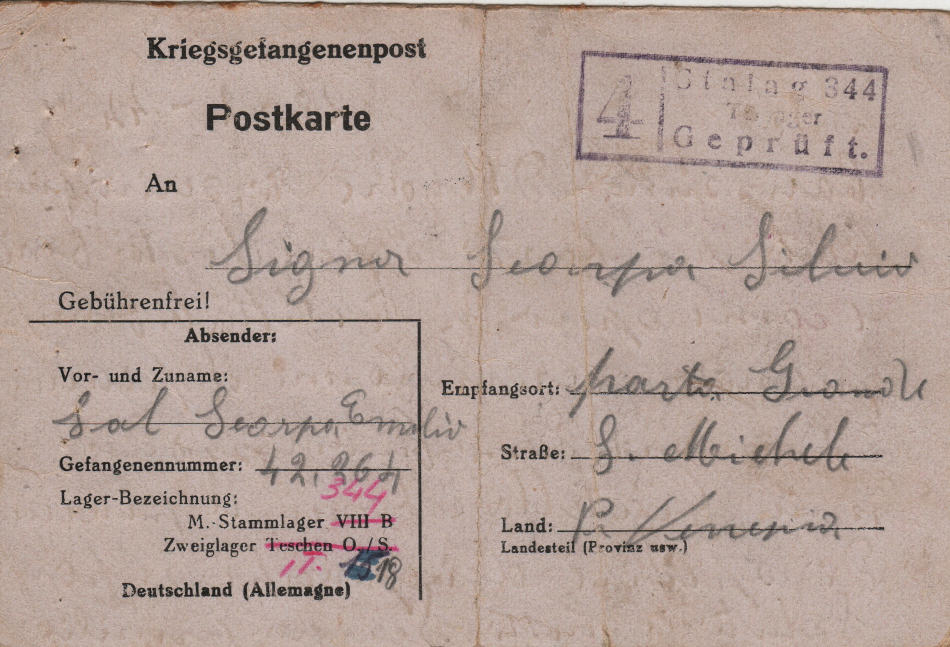 Kriegsgefangenenpost
Postkarte
4 Stalag 344
Geprüft.
An
Signor Scarpa Silvio
Gebührenfrei!
Absender:
Vor- und Zuname:
Sol Scarpa Emilio
Gefangenennummer: 42.264
Lager-Bezeichnung:
344
M.-Stammlager VIII B
Zweiglager Teschen O./S.
18
Deutschland (Allemagne)
Empfangsort: Porto Grande
Straße: S. Michele
Land: Pr. Venezia
Landesteil (Provinz usw.)